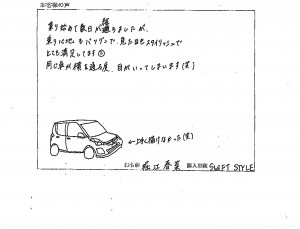 お客様の声
乗り始めて数日が経ちましたが、
乗り心地もバツグンで、見た目もスタイリッシュで
とても満足してます☺
同じ車が横を通る度、目がいってしまいます(笑)
←上手く描けなかった(笑)
お名前 堀江 春菜 購入車種 SWIFT STYLE